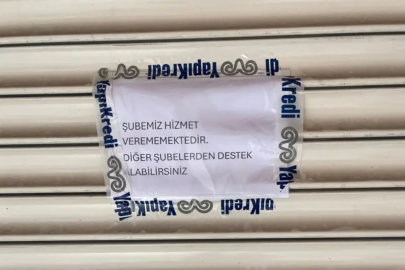 di YapıKredi YapıKredi
YapıKredi
Kredi
ŞUBEMİZ HİZMET
VEREMEMEKTEDİR.
DİĞER ŞUBELERDEN DESTEK
ALABİLİRSİNİZ
Yapı
YapıKredi
Kredi